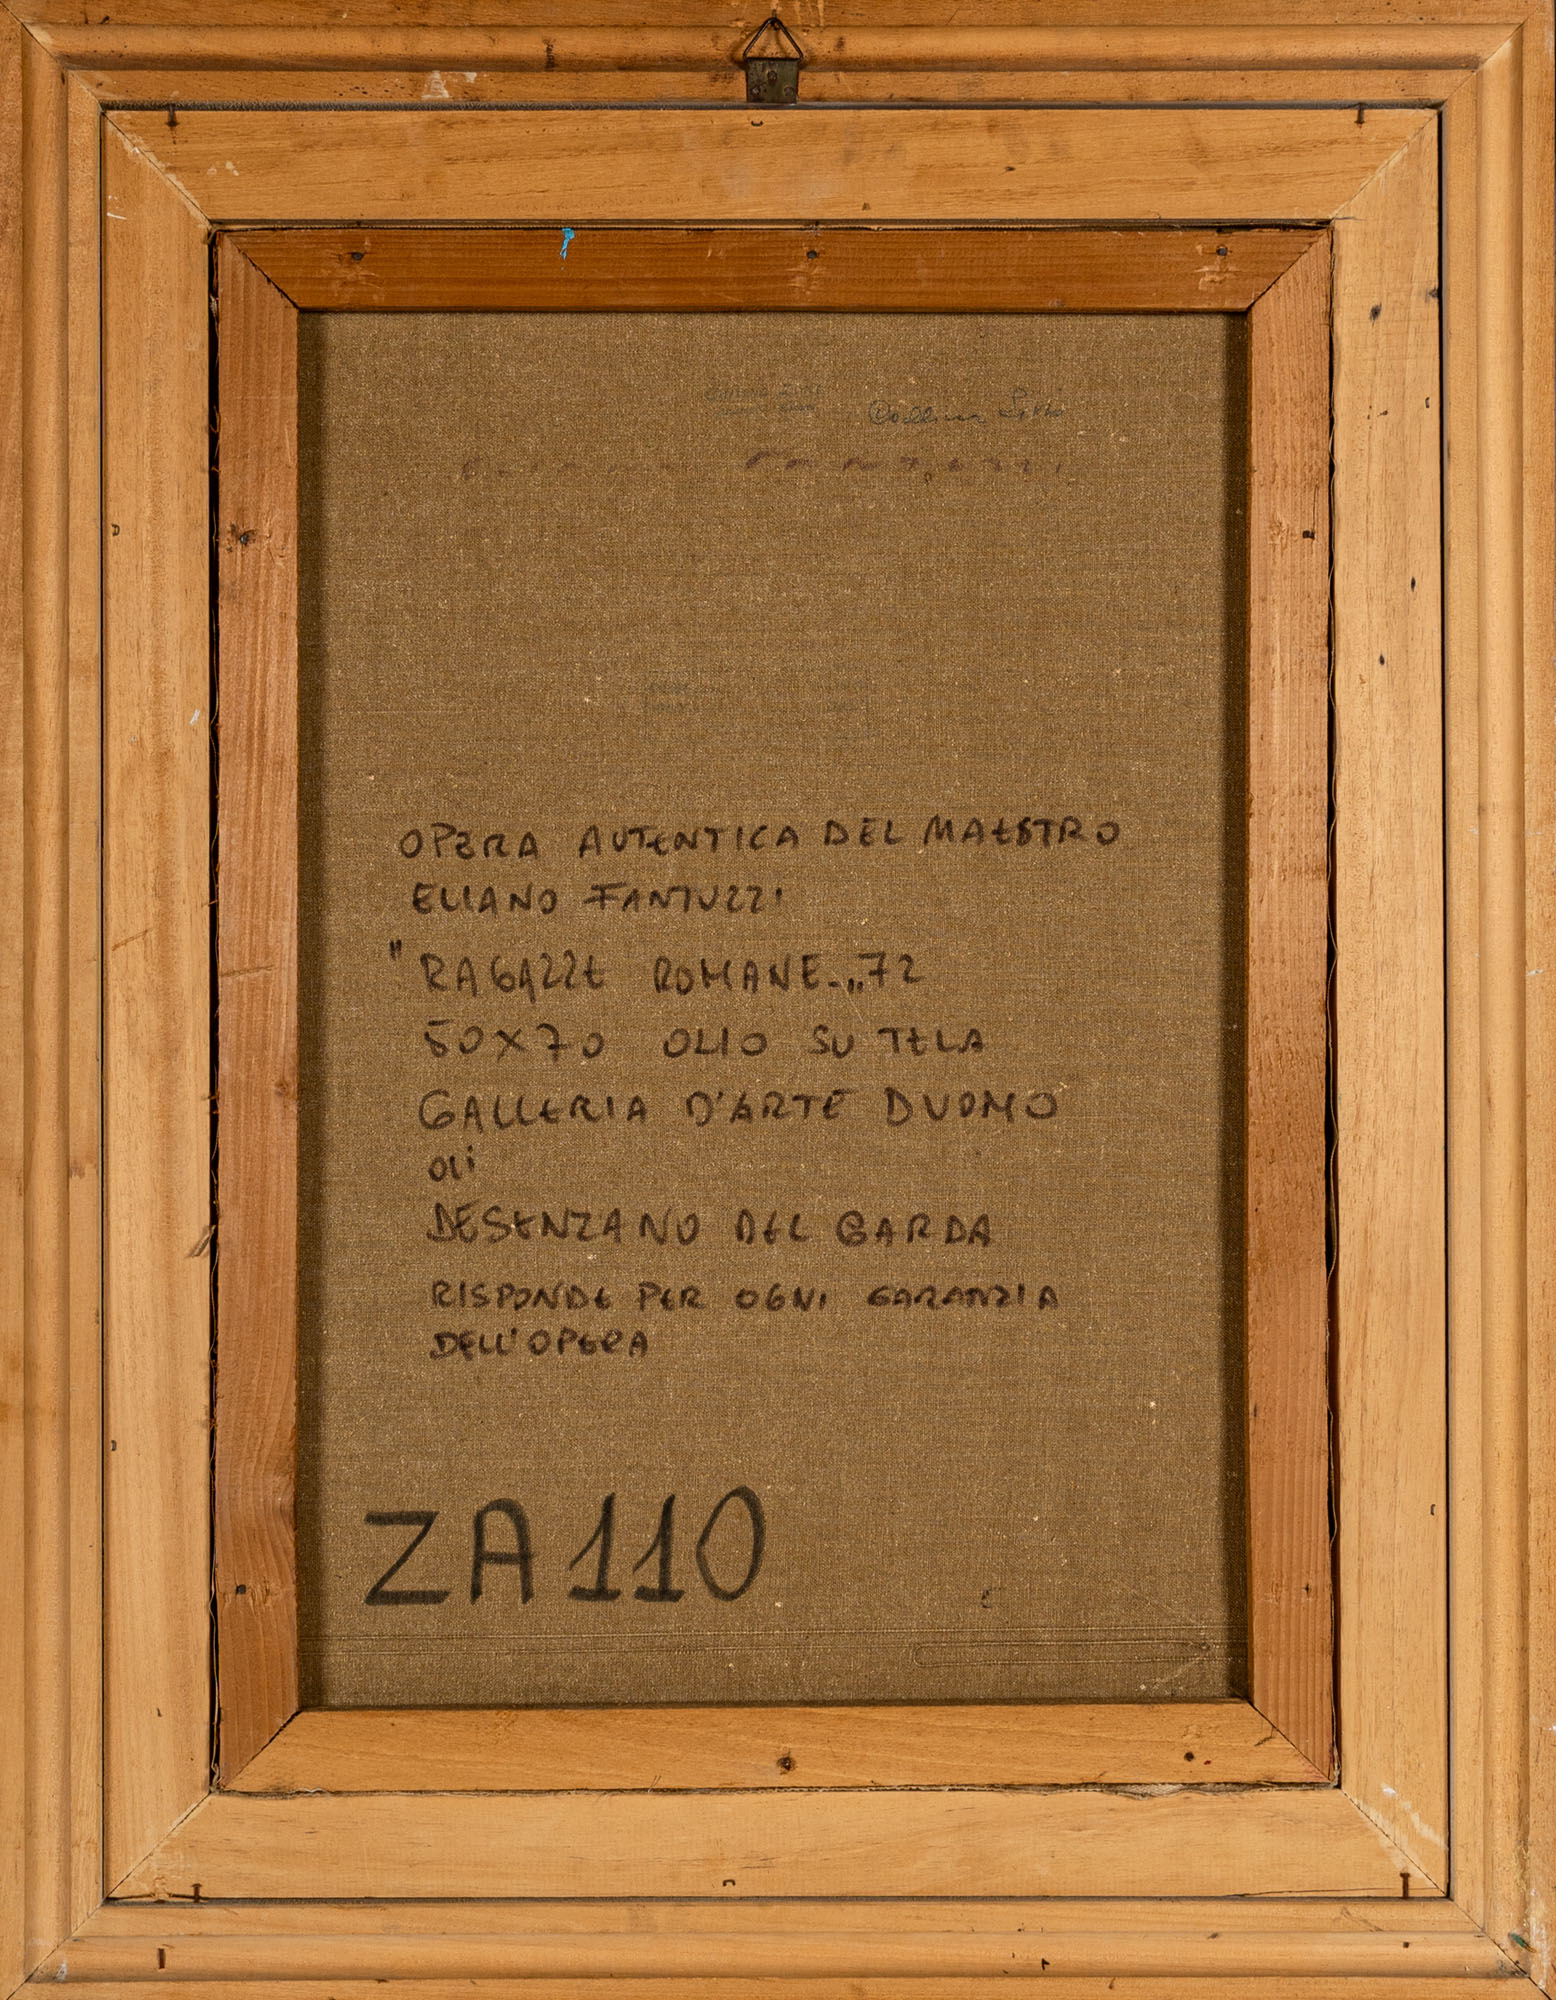 OPERA AUTENTICA DEL MAESTRO
ELIANO FANTUZZI
"RAGAZZE ROMANE.„72
50X70 OLIO SU TELA
GALLERIA D'ARTE DUOMO
DI
DESENZANO DEL GARDA
RISPONDE PER OGNI GARANZIA
DELL'OPERA
ZA110